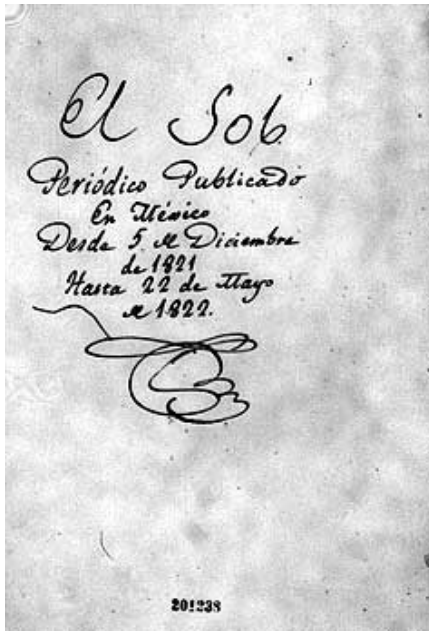 El Sol
Periódico Publicado
En México
Desde 5 de Diciembre
de 1821
Hasta 22 de Mayo
de 1822.
201238